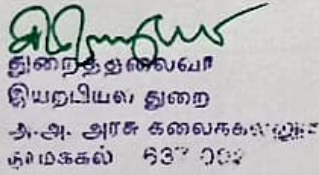 துறைத்தலைவர்
இயற்பியல் துறை
அ.அ. அரசு கலைக்கல்லூரி
நாமக்கல் 637 002